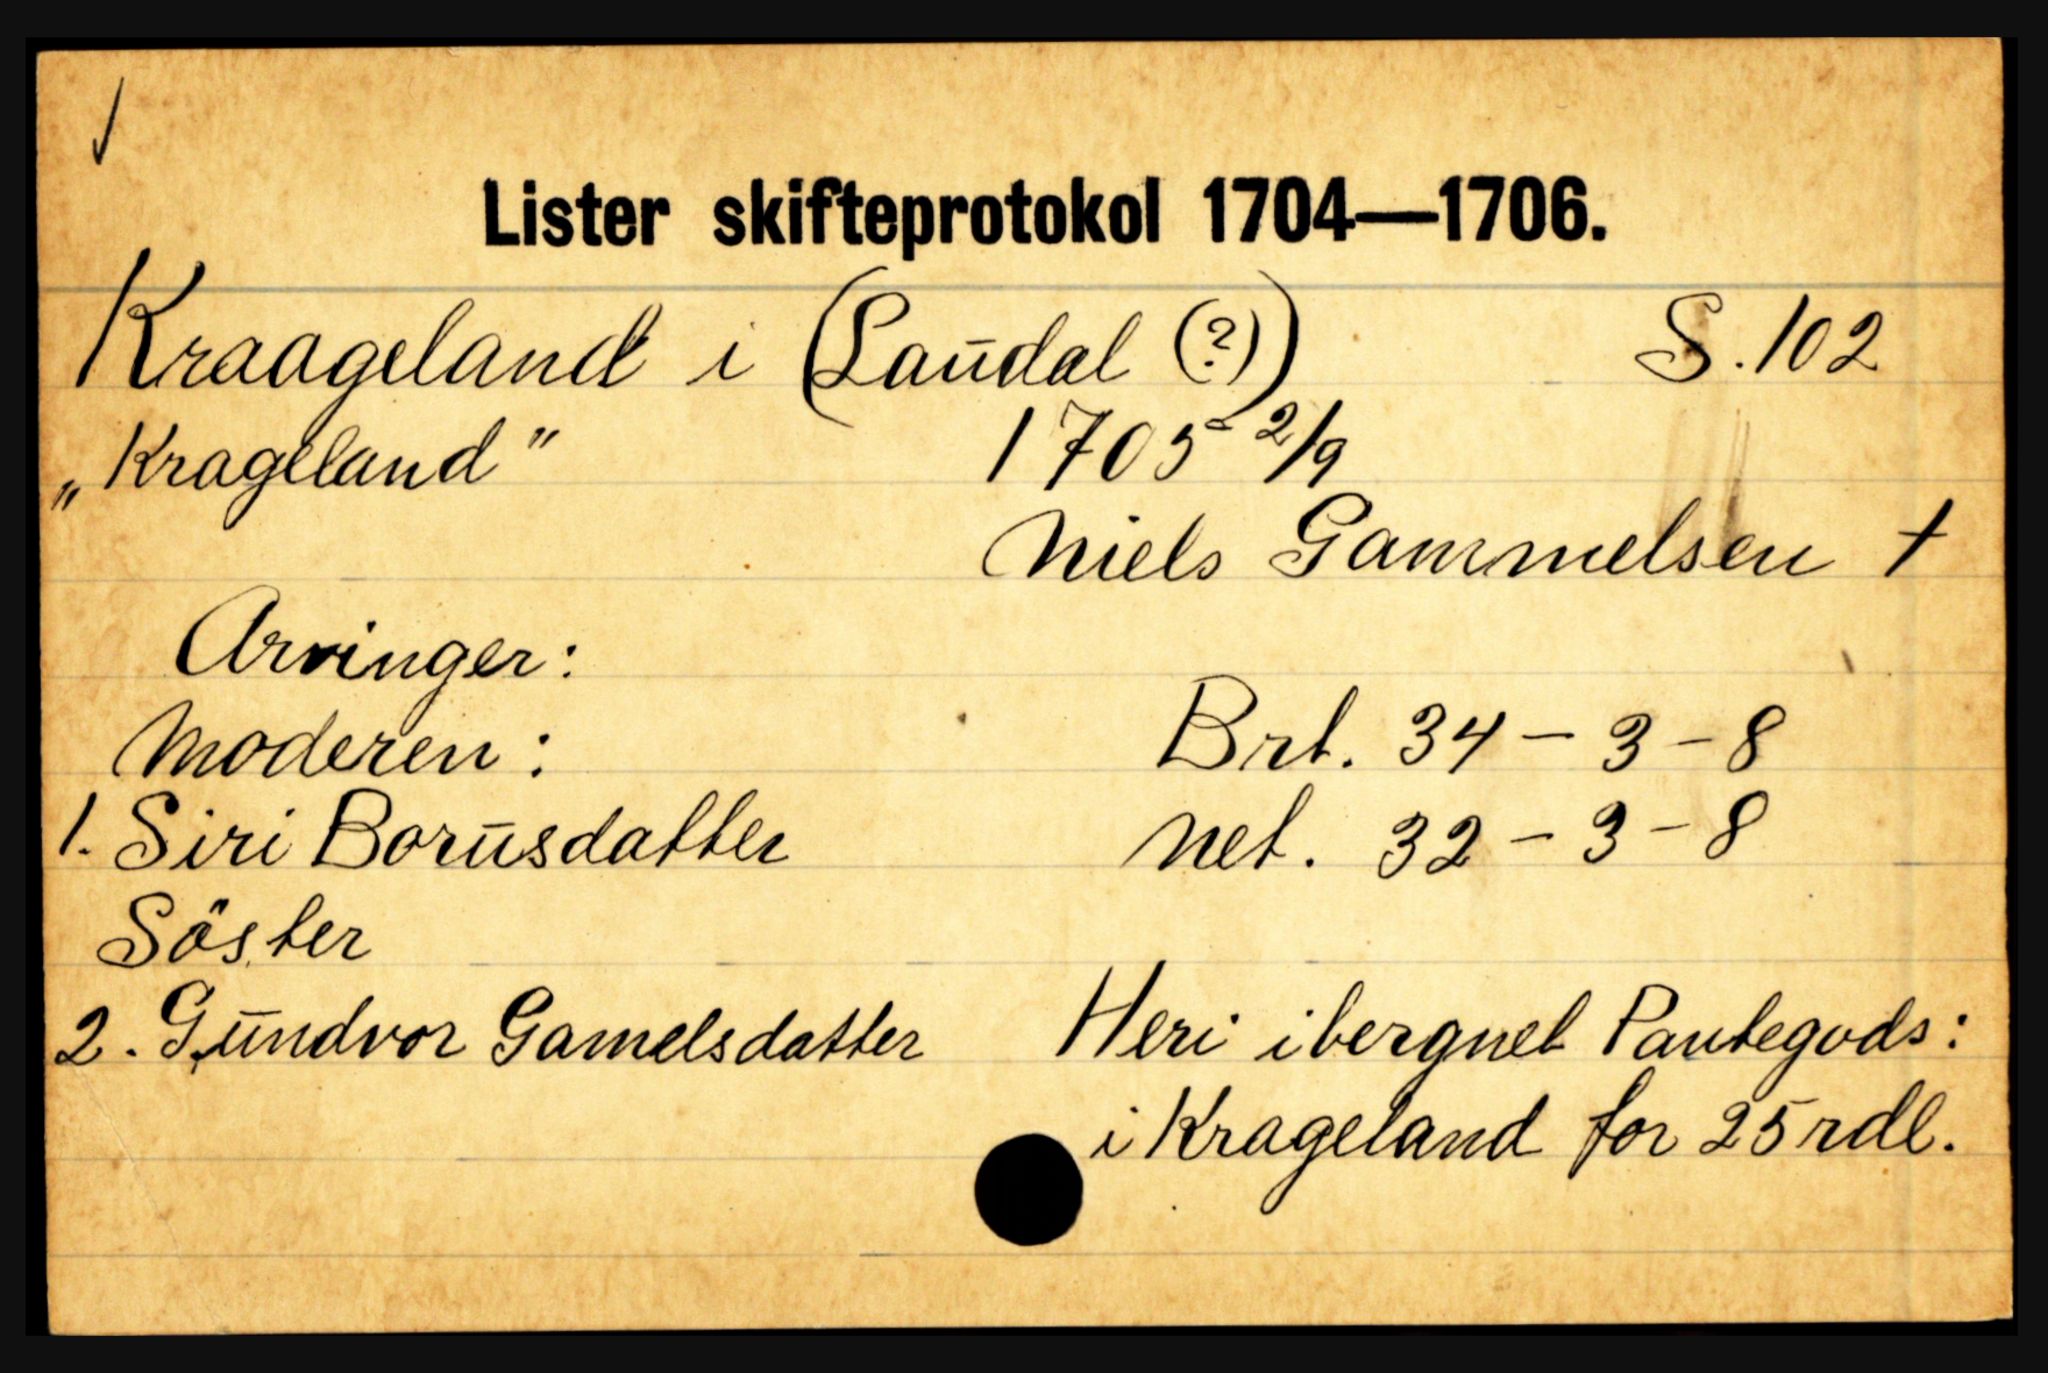 Lister skifteprotokol 1704—1706.
Kraageland i (Laudal (?)) S. 102
„Krageland" 1705 2/9
Niels Gammelsen †
Arvinger:
Moderen: Brt. 34 – 3 – 8
1. Siri Borusdatter net. 32 – 3 – 8
Söster
2. Gundvor Gamelsdatter Heri ibergnet Pantegods:
i Krageland for 25 rdl.